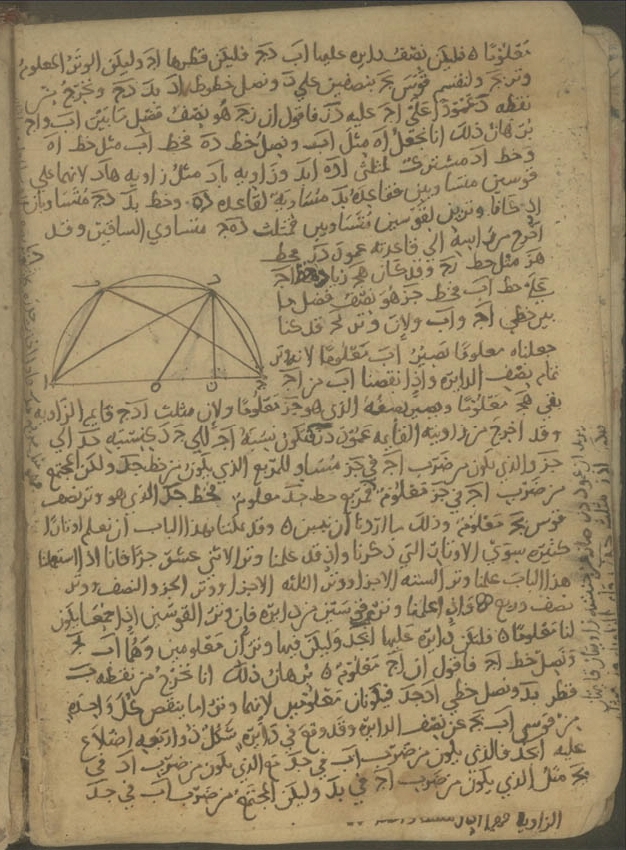 معلوما ه فليكن نصف دايره عليها اب دج فليكن قطرها اج وليكن الوتر المعلوم
وتر بج ولنقسم قوس بج بنصفين علي د ونصل خطوط اد بد دج ونخرج من
نقطه د عمودا علي اج عليه دز فاقول ان زج هو نصف فضل ما بين اب واج
برهان ذلك انا نجعل اه مثل اب ونصل خط ده فخط اب مثل خط اه
وخط اد مشترك لمثلثي اده ابد وزاويه باد مثل زاويه هاد لانهما علي
قوسين متساويتين فقاعده بد مساويه لقاعده ده وخط بد دج متساويان
اذ كانا وترين لقوسين متساويين فمثلث دهج متساوي الساقين وقد
اخرج من راسه الي قاعدته عمود دز فخط
هز مثل خط زج وقد كان هج زياده خط اج
علي خط اب فخط جز هو نصف فضل ما
بين خطي اج واب ولان وتر بج قد كنا
جعلناه معلوما تصير اب معلوما لانه وتر
تمام نصف الدايره واذا نقصنا اب من اج
بقي هج معلوما ويصير نصفه الذي هو جز معلوما ولان مثلث ادج قايم الزاويه
وقد اخرج من زاويته القايمه عمود دز تكون نسبه اج الي جد كنسبه جد الي
جز والذي يكون من ضرب اج في جز مساو للمربع الذي يكون من خط جد ولكن المجتمع
من ضرب اج في جز معلوم فمربع خط جد معلوم فخط جد الذي هو وتر نصف
قوس بج معلوم وذلك ما اردنا ان نبين ه وقد يمكننا بهذا الباب ان نعلم اوتارا
كثيره سوي الاوتار التي ذكرنا واذ قد علمنا وتر الاثني عشر جزا فانا اذا استعملنا
هذا الباب علمنا وتر السته الاجزا ووتر الثلثه الاجزا ووتر الجزو والنصف ووتر
نصف وربع واذا علمنا وتري قوسين من دايره فان وتر القوسين اذا جمعتا يكون
لنا معلوما ه فليكن دايره عليها ابجد وليكن فيها وتران معلومين وهما اب بج
ونصل خط اج فاقول ان اج معلوم ه برهان ذلك انا نخرج من نقطه ب
قطر بد ونصل خطي ادجد فيكونان معلومين لانهما وترا ما ينقص كل واحده
من قوسي اب بج عن نصف الدايره وقد وقع في دايره شكل ذو اربعه اضلاع
عليه ابجد فالذي يكون من ضرب اب في جد مع الذي يكون من ضرب اد في
بج مثل الذي يكون من ضرب اج في بد وليكن المجتمع من ضرب اب في جد
الزاويه
ب د
ا ه ز ج